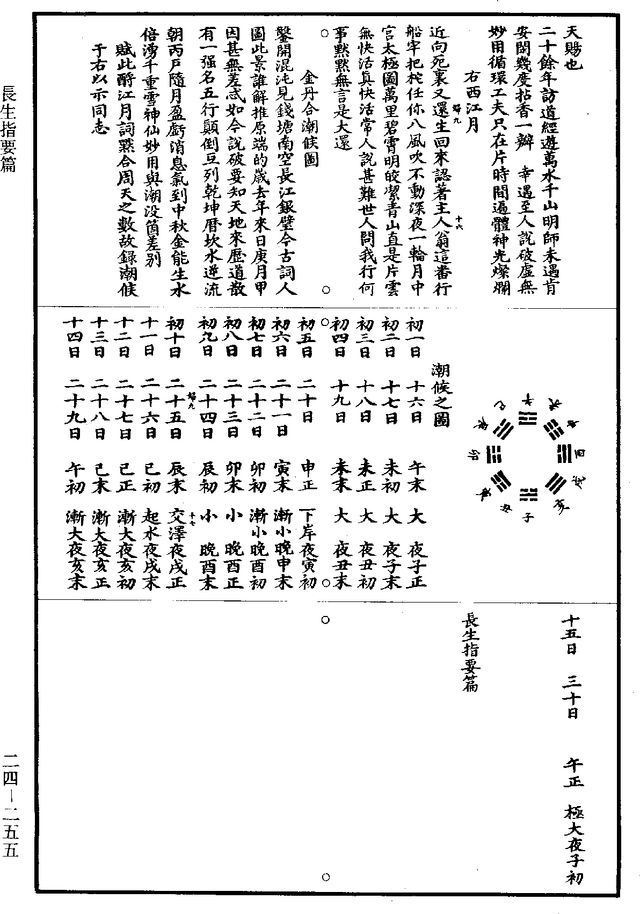 天賜也
二十餘年訪道經遊萬水千山明師未遇肯
安閒幾度拈香一瓣　幸遇至人說破虛無
妙用循環工夫只在片時間遍體神光燦爛
右西江月
近向死裏又還生回來認著主人翁這番行
歸九
十六
船牢把柁任你八風吹不動深夜一輪月中
宮太極圖萬里碧霄明皎潔青山直是片雲
無快活真快活常人說甚難世人問我行何
事黙黙無言是大還
金丹合潮候圖
鑿開混沌見錢塘南空長江銀壁今古詞人
圖此景誰解推原端的歲去年來日庚月甲
因甚無差忒如今說破要知天地來歷道散
有一強名五行顛倒互列乾坤曆坎水逆流
朝丙戶隨月盈虧消息氣到中秋金能生水
倍湧千重雪神仙妙用與潮沒箇差別
賦此酹江月詞黙合周天之數故録潮候
于右以示同志
午
未
申
酉
戌
亥
子
丑
寅
卯
辰
巳
潮候之圖
初一日　十六日　午末　大　夜子正
初二日　十七日　未初　大　夜子末
初三日　十八日　未正　大　夜丑初
初四日　十九日　未末　大　夜丑末
初五日　二十日　申正　下岸夜寅初
初六日　二十一日　寅末　漸小晚申末
初七日　二十二日　卯初　漸小晚酉初
初八日　二十三日　卯末　小　晚酉正
初九日　二十四日　辰初　小　晚酉末
歸九
十七
初十日　二十五日　辰末　交澤夜戌正
十一日　二十六日　巳初　起水夜戌末
十二日　二十七日　巳正　漸大夜亥初
十三日　二十八日　巳末　漸大夜亥正
十四日　二十九日　午初　漸大夜亥末
十五日　三十日　午正　極大夜子初
長生指要篇
長生指要篇
二四—二五五